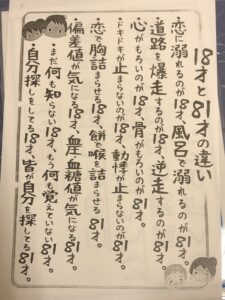 18才と81才の違い
・恋に溺れるのが18才、風呂で溺れるのが81才。
・道路を爆走するのが18才、逆走するのが81才。
・心がもろいのが18才、骨がもろいのが81才。
・ドキドキが止まらないのが18才、動悸が止まらないのが81才。
・恋で胸詰まらせる18才、餅で喉詰まらせる81才。
・偏差値が気になる18才、血圧・血糖値が気になる81才。
・まだ何も知らない18才、もう何も覚えていない81才。
・自分探しをしてる18才、皆が自分を探してる81才。